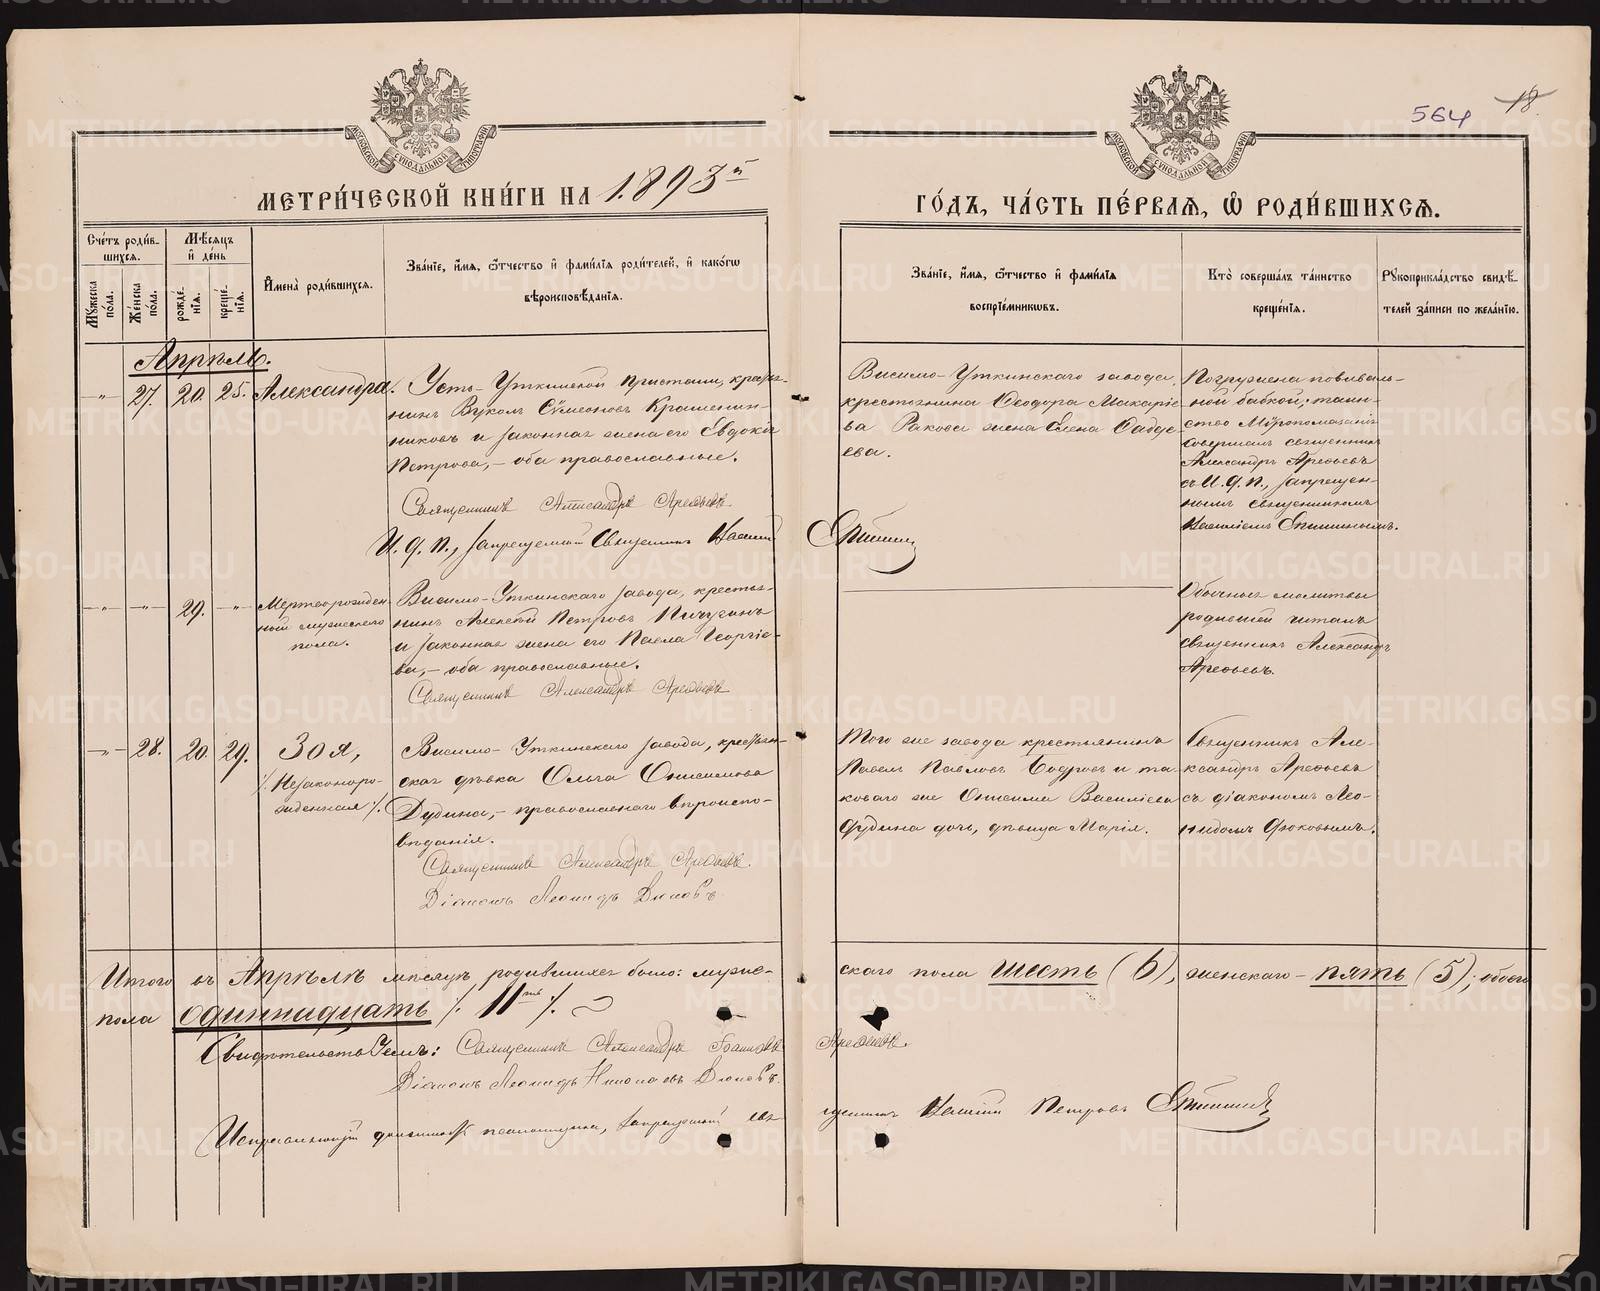 564 18
МОСКОВСКОЙ СѴНОДАЛЬНОЙ ТИПОГРАФІИ
МОСКОВСКОЙ СѴНОДАЛЬНОЙ ТИПОГРАФІИ
МЕТРИ́ЧЕСКОЙ КНИ́ГИ НА 1893й
ГО́ДЪ, ЧА́СТЬ ПЕ́РВАЯ, Ѽ РОДИ́ВШИХСЯ.
Сче́тъ роди́в-
шихся.
Мꙋжеска по́ла.
Же́нска по́ла.
Мѣ́сяцъ
и̂ де́нь
рожде-
нїя.
креще-
нїя.
И̂мена̀ роди́вшихся.
Зва́нїе, и́мя, ѻ́тчество и̂ фами́лїя роди́телей, и̂ како́гѡ
вѣроисповѣ́данїя.
Зва́нїе, и́мя, ѻ́тчество и̂ фами́лїя
воспрїе́мникѡвъ.
Кто̀ соверша́лъ та́инство
креще́нїя.
Рꙋкоприкла́дство свидѣ́-
телей за́писи по жела́нїю.
Апрѣль.
-"- 27. 20. 25. Александра.
Усть-Уткинской пристани, крестья-
нинъ Вуколъ Сѵмеоновъ Крашенин-
никовъ и законная жена его Евдокія
Петрова, - оба православные.
Священникъ Александръ Арефьевъ
И. д. п., запрещенный Священникъ Василій
Висимо-Уткинскаго завода,
крестьянина Ѳеодора Макаріе-
ва Ракова жена Елена Ѳадде-
ева.
Епишинъ
Погружена повиваль-
ной бабкой; таин-
ство Мѵропомазанія
совершалъ священникъ
Александръ Арефьевъ
съ И. д. п., запрещен-
нымъ священникомъ
Василіемъ Епишинымъ.
-"- -"- 29. -"- Мертворожден-
ный мужескаго
пола.
Висимо-Уткинскаго завода, крестья-
нинъ Алексѣй Петровъ Пичугинъ
и законная жена его Павла Георгіе-
ва, - оба православные.
Священникъ Александръ Арефьевъ
Обычныя молитвы
родившей читалъ
священникъ Александръ
Арефьевъ.
-"- 28. 20. 29. Зоя,
./. Незаконоро-
жденная ./.
Висимо-Уткинскаго завода, крестьян-
ская дѣвка Ольга Онисимова
Дудина, - православнаго вѣроиспо-
вѣданія.
Священникъ Александръ Арефьевъ.
Діаконъ Леонидъ Дюковъ.
Того же завода крестьянинъ
Павелъ Павловъ Бодровъ и та-
коваго же Онисима Василіева
Дудина дочь, дѣвица Марія.
Священникъ Але-
ксандръ Арефьевъ
съ діакономъ Лео-
нидомъ Дюковымъ.
Итого въ Апрѣлѣ мѣсяцѣ родившихся было: муже-
скаго пола шесть (6), женскаго - пять (5); обоего
пола одиннадцать ./. 11ть ./.
Свидѣтельствуемъ: Священникъ Александръ Іоанновъ
Арефьевъ.
Діаконъ Леонидъ Николаевъ Дюковъ.
Исправляющій должность псаломщика, запрещенный свя-
щенникъ Василій Петровъ Епишинъ